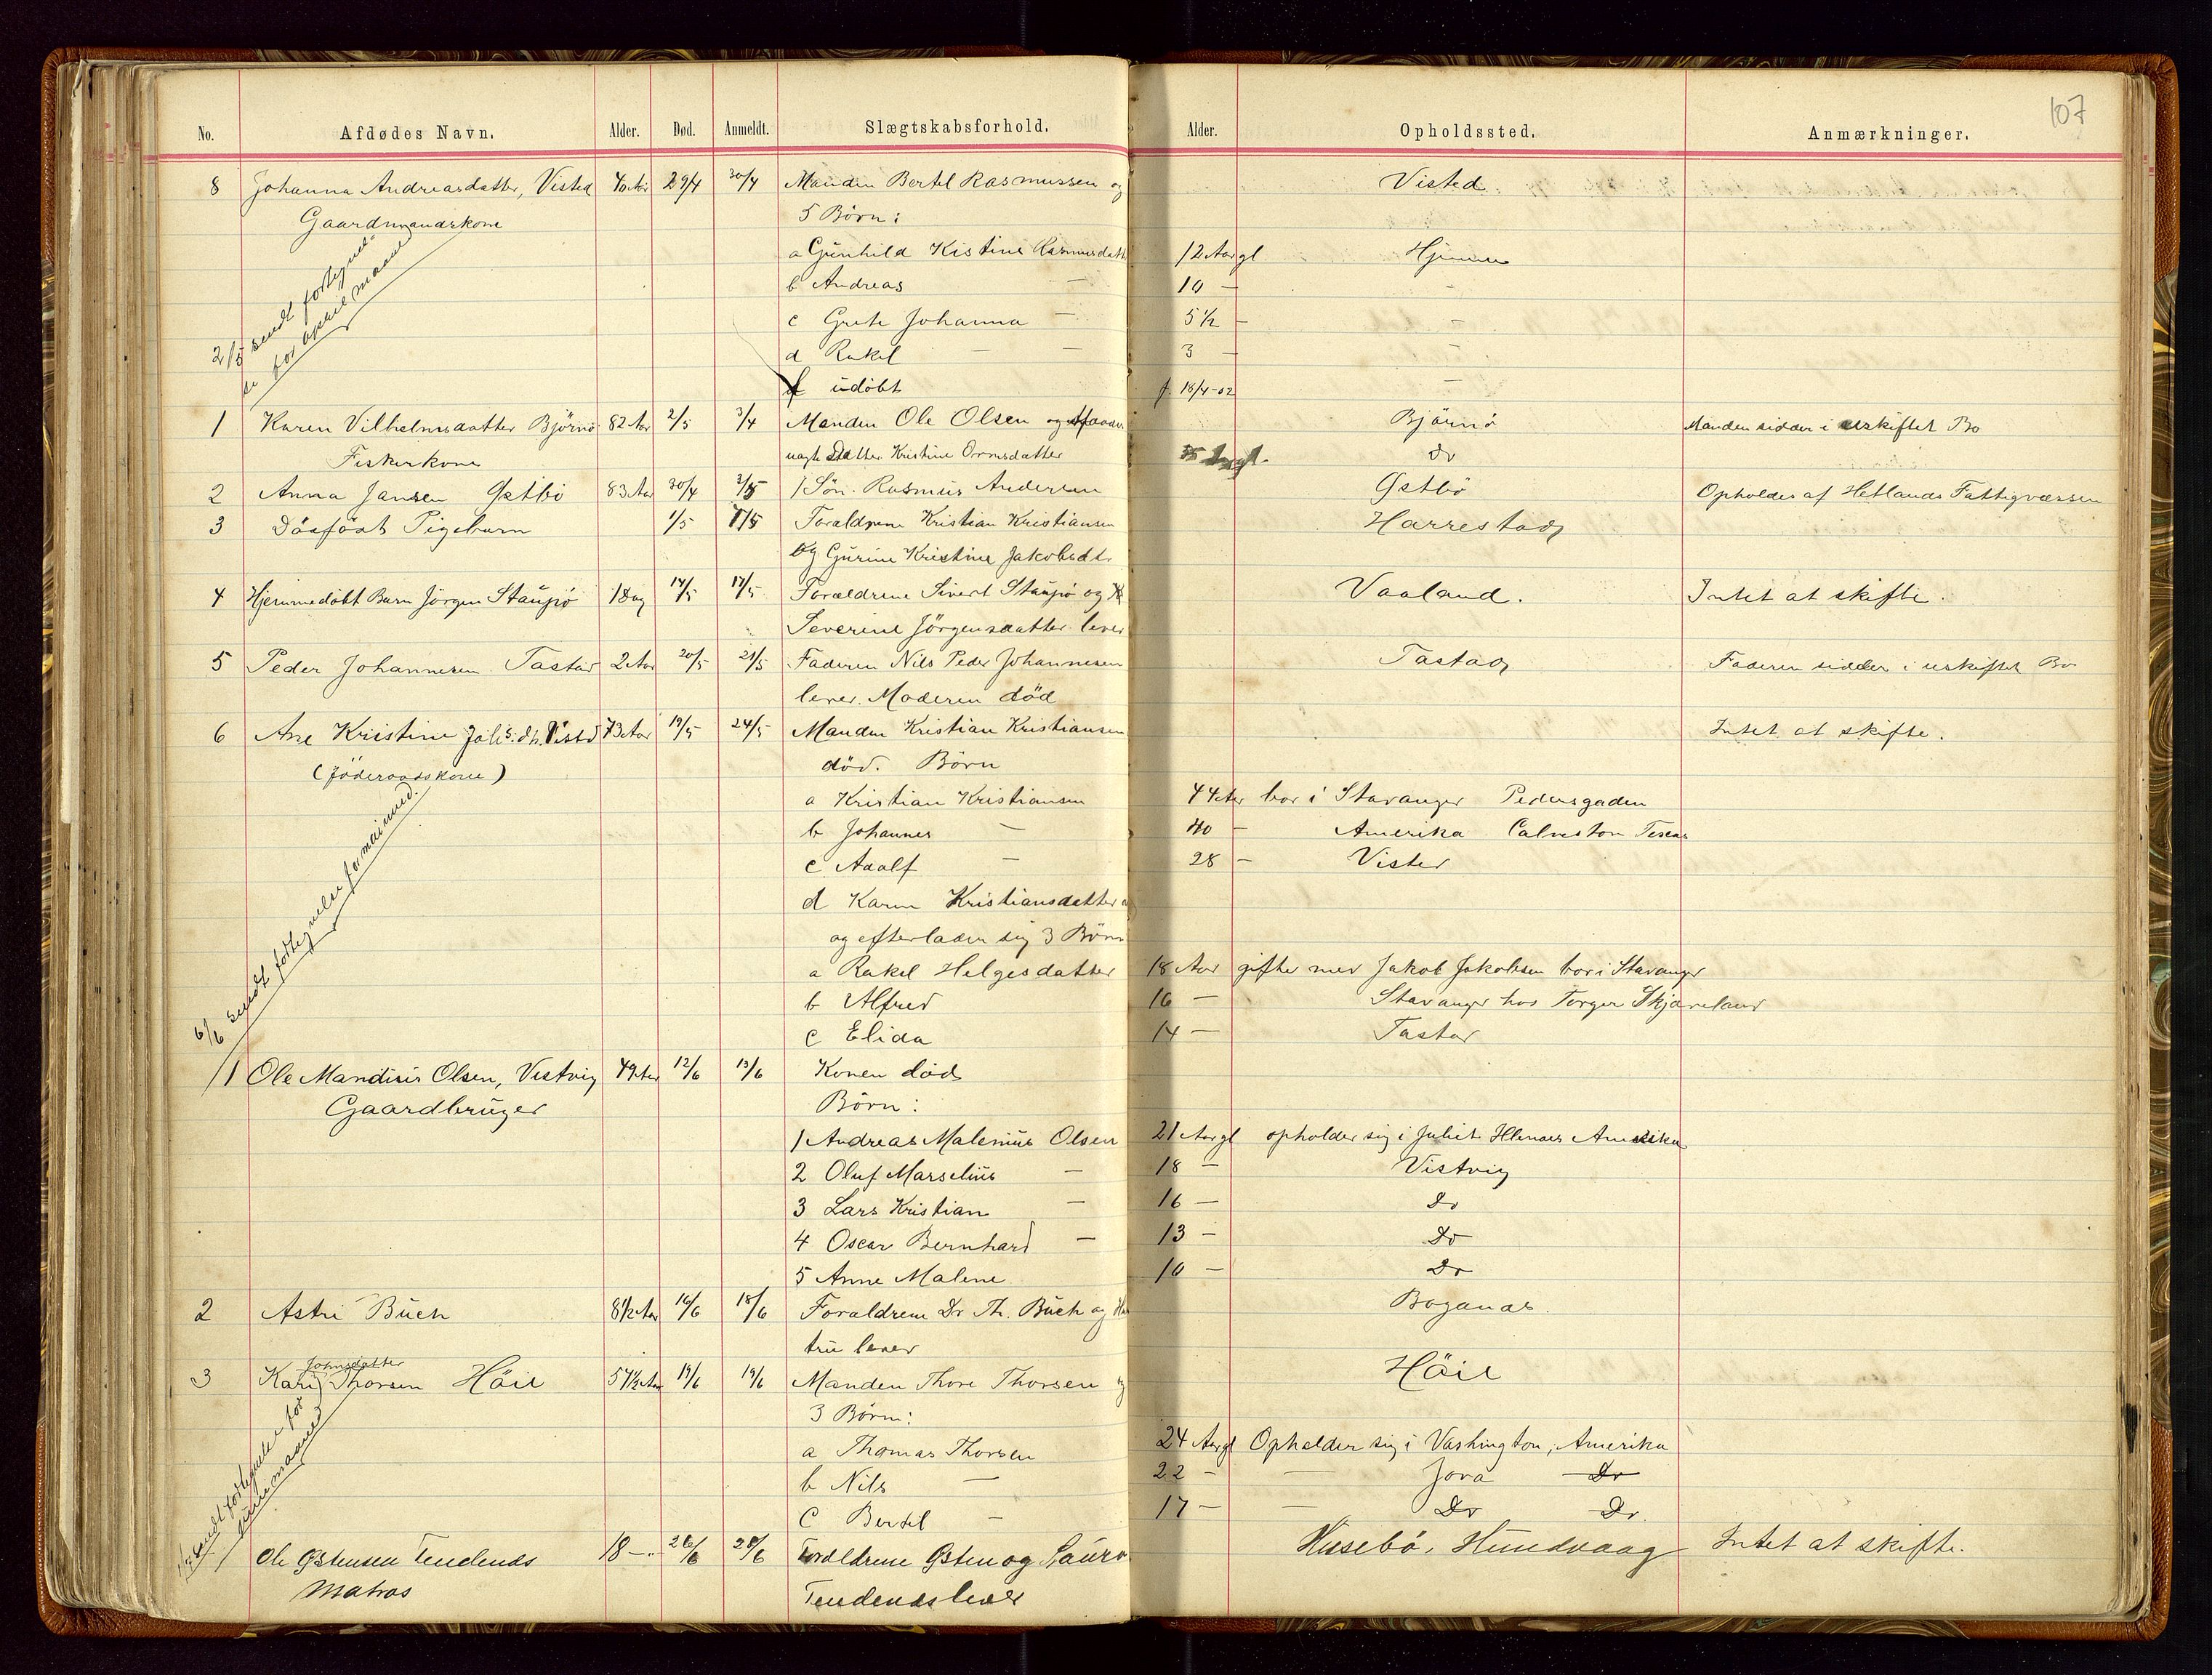 107
No. Afdødes Navn. Alder. Død. Anmeldt. Slægtskabsforhold. Alder. Opholdssted. Anmærkninger.
8 Johanna Andreasdatter, Visted 40 Aar 29/4 30/4 Manden Bertel Rasmussen og Visted
Gaardmandskone 5 Börn:
a Gunhild Kistine Rasmusdatt 12 Aar gl Hjemme
b Andreas — 10 — -
c Grete Johanna — 5 1/2 — -
2/5 sendt fortegnelse
for april maaned
d Rakel — — 3 — -
f udöbt f. 18/4-02 —
1 Karen Vilhelmsdatter Björnö 82 Aar 2/5 3/4 Manden Ole Olsen og Björnö Manden sidder i uskiftet Bo
Fiskerkone uægte Datter Kristine Ormsdatter do
2 Anna Jansen Østbö 83 Aar 30/4 3/5 1 Sön. Rasmus Andersen Østbö Opholdes af Hetlands Fattigvæsen
3 Dödfödt Pigebarn 1/5 7/5 Foraldrene Kristian Kristiansen Harrestad
og Gurine Kristine Jakobsdt.
4 Hjemmedöbt Barn Jörgen Staupö 1 Dag 14/5 17/5 Forældrene Sivert Staupö og Vaaland. Intet at skifte.
Severine Jörgensdatter lever
5 Peder Johannesen Tastad 2 Aar 20/5 21/5 Faderen Nils Peder Johannesen Tastad Faderen sidder i uskiftet Bo
lever. Moderen död
6 Ane Kristine Johs.dt. Visted 73 Aar 19/5 24/5 Manden Kristian Kristiansen Intet at skifte.
(Föderaadskone) död. Börn
a Kristian Kristiansen 44 Aar bor i Stavanger Pedersgaden
b Johannes — 40 — Amerika Calveston Texas
c Adolf — 28 — Visted
d Karen Kristiansdatter
og efterlader sig 3 Börn
6/6 sendt fortegnelse for mai mnd.
a Rakel Helgesdatter 18 Aar gifte med Jakob Jakobsen bor i Stavanger
b Alfred 16 — Stavanger hos Torger Skjæveland
c Elida 14 — Tastad
1 Ole Mandius Olsen, Vistvig 49 Aar 12/6 13/6 Konen död
Gaardbruger Börn:
1 Andreas Malenius Olsen 21 Aar gl opholder sig i Juliet Illenoes Amerika
2 Oluf Marselius — 18 — Vistvig
3 Lars Kristian — 16 — Do
4 Oscar Bernhard — 13 — Do
5 Anne Malene 10 — Do
2 Astri Buch 8 1/2 Aar 16/6 18/6 Foraldrene Dr Th. Buch og Hus Boganæs.
tru lever
Johnsdatter
3 Kari Thorsen Höie 57 1/2 Aar 19/6 19/6 Manden Thore Thorsen og Höie
3 Börn:
a Thomas Thorsen 24 Aar gl Opholder sig i Vashington, Amerika
b Nils — 22 — — Jova Do
c Bertil — 17 — — Do Do
sendt fortegnelse for
juni maaned
1 Ole Østensen Tendenæs 18 — 26/6 28/6 Forældrene Østen og Laura Husebö, Hundvaag Intet at skifte.
Matros Tendenæs lever